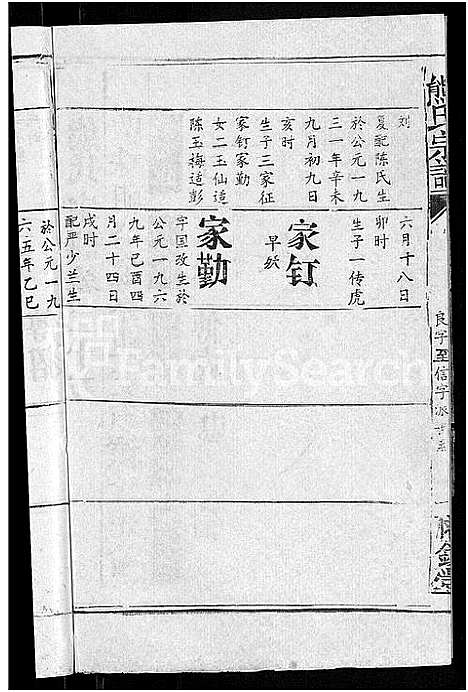 熊氏宗譜
良字至信字派
刘
夏配陈氏生
於公元一九
三一年辛未
九月初九日
亥时
生子三家征
家钉家勤
女二玉仙适
陈玉梅适彭
六月十八日
卯时
生子一传虎
家钉
早殀
家勤
字国改生於
公元一九六
九年已酉四
月二十四日
戌时
配严少兰生
於公元一九
六五年乙巳
FamilySearch